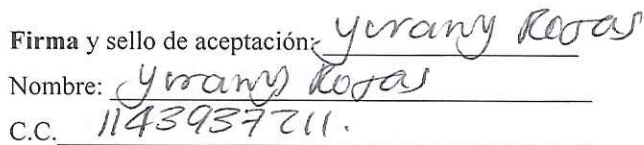 Firma y sello de aceptación: Yurany Rojas
Nombre: Yurany Rojas
C.C. 1143937211.